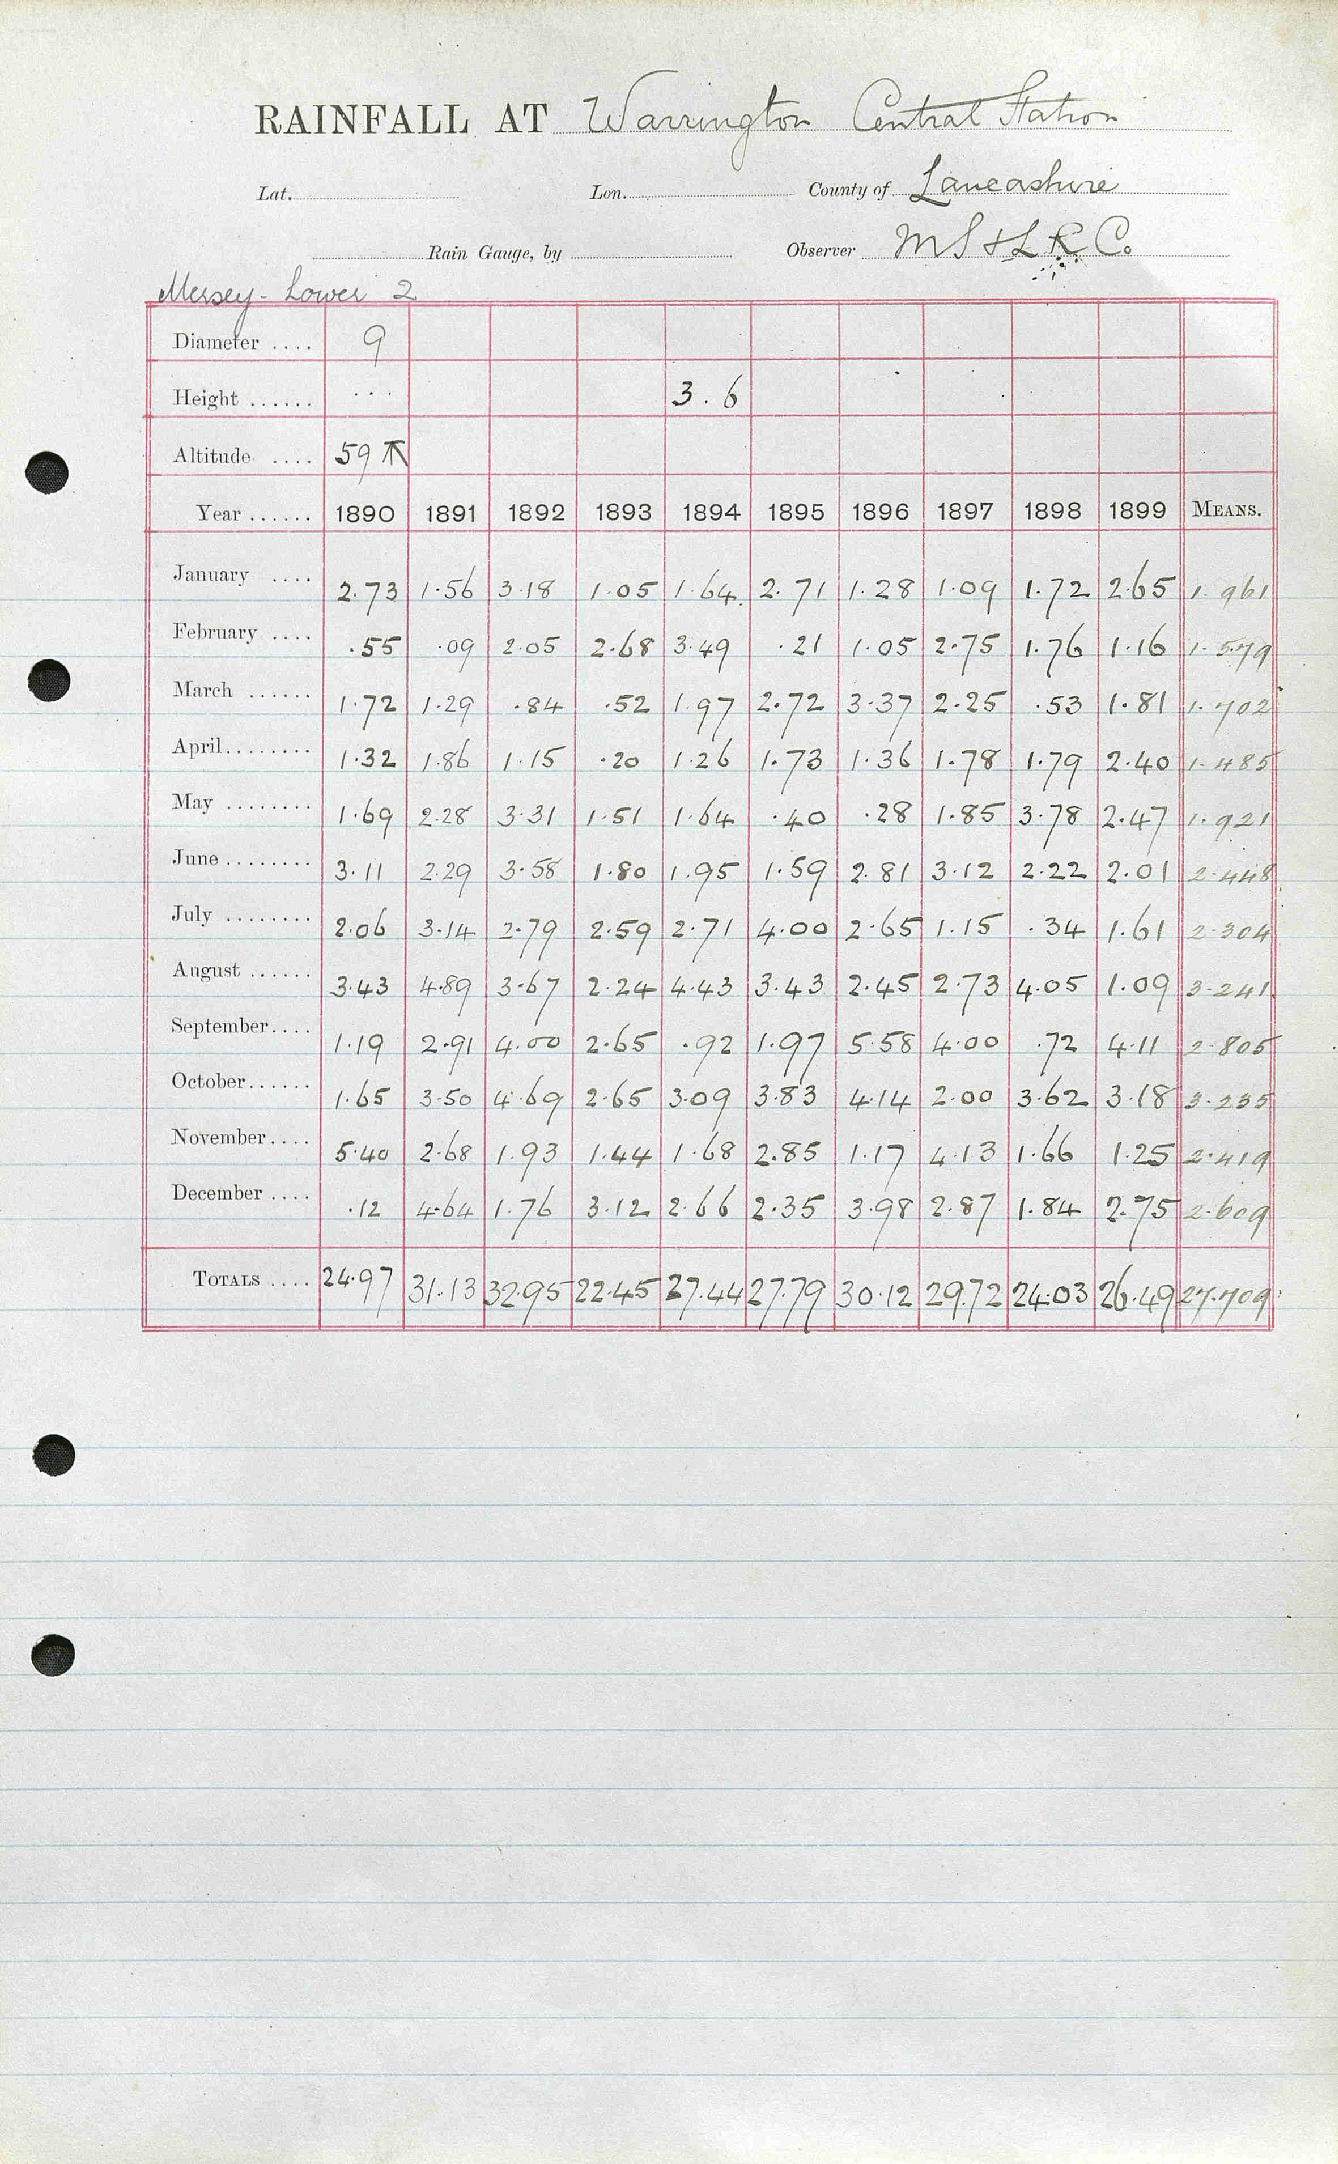 RAINFALL AT Warrington Central Station
Lat. Lon. County of Lancashire
Rain Gauge, by Observer M S & L R Co.
Mersey - Lower 2
Diameter .... 9
Height ...... ... 3.6
Altitude .... 59
Year ...... 1890 1891 1892 1893 1894 1895 1896 1897 1898 1899 MEANS.
January .... 2.73 1.56 3.18 1.05 1.64 2.71 1.28 1.09 1.72 2.65 1.961
February .... .55 .09 2.05 2.68 3.49 .21 1.05 2.75 1.76 1.16 1.579
March ...... 1.72 1.29 .84 .52 1.97 2.72 3.37 2.25 .53 1.81 1.702
April........ 1.32 1.86 1.15 .20 1.26 1.73 1.36 1.78 1.79 2.40 1.485
May ........ 1.69 2.28 3.31 1.51 1.64 .40 .28 1.85 3.78 2.47 1.921
June ........ 3.11 2.29 3.58 1.80 1.95 1.59 2.81 3.12 2.22 2.01 2.448
July ........ 2.06 3.14 2.79 2.59 2.71 4.00 2.65 1.15 .34 1.61 2.304
August ...... 3.43 4.89 3.67 2.24 4.43 3.43 2.45 2.73 4.05 1.09 3.241
September.... 1.19 2.91 4.00 2.65 .92 1.97 5.58 4.00 .72 4.11 2.805
October...... 1.65 3.50 4.69 2.65 3.09 3.83 4.14 2.00 3.62 3.18 3.235
November.... 5.40 2.68 1.93 1.44 1.68 2.85 1.17 4.13 1.66 1.25 2.419
December .... .12 4.64 1.76 3.12 2.66 2.35 3.98 2.87 1.84 2.75 2.609
TOTALS .... 24.97 31.13 32.95 22.45 27.44 27.79 30.12 29.72 24.03 26.49 27.709